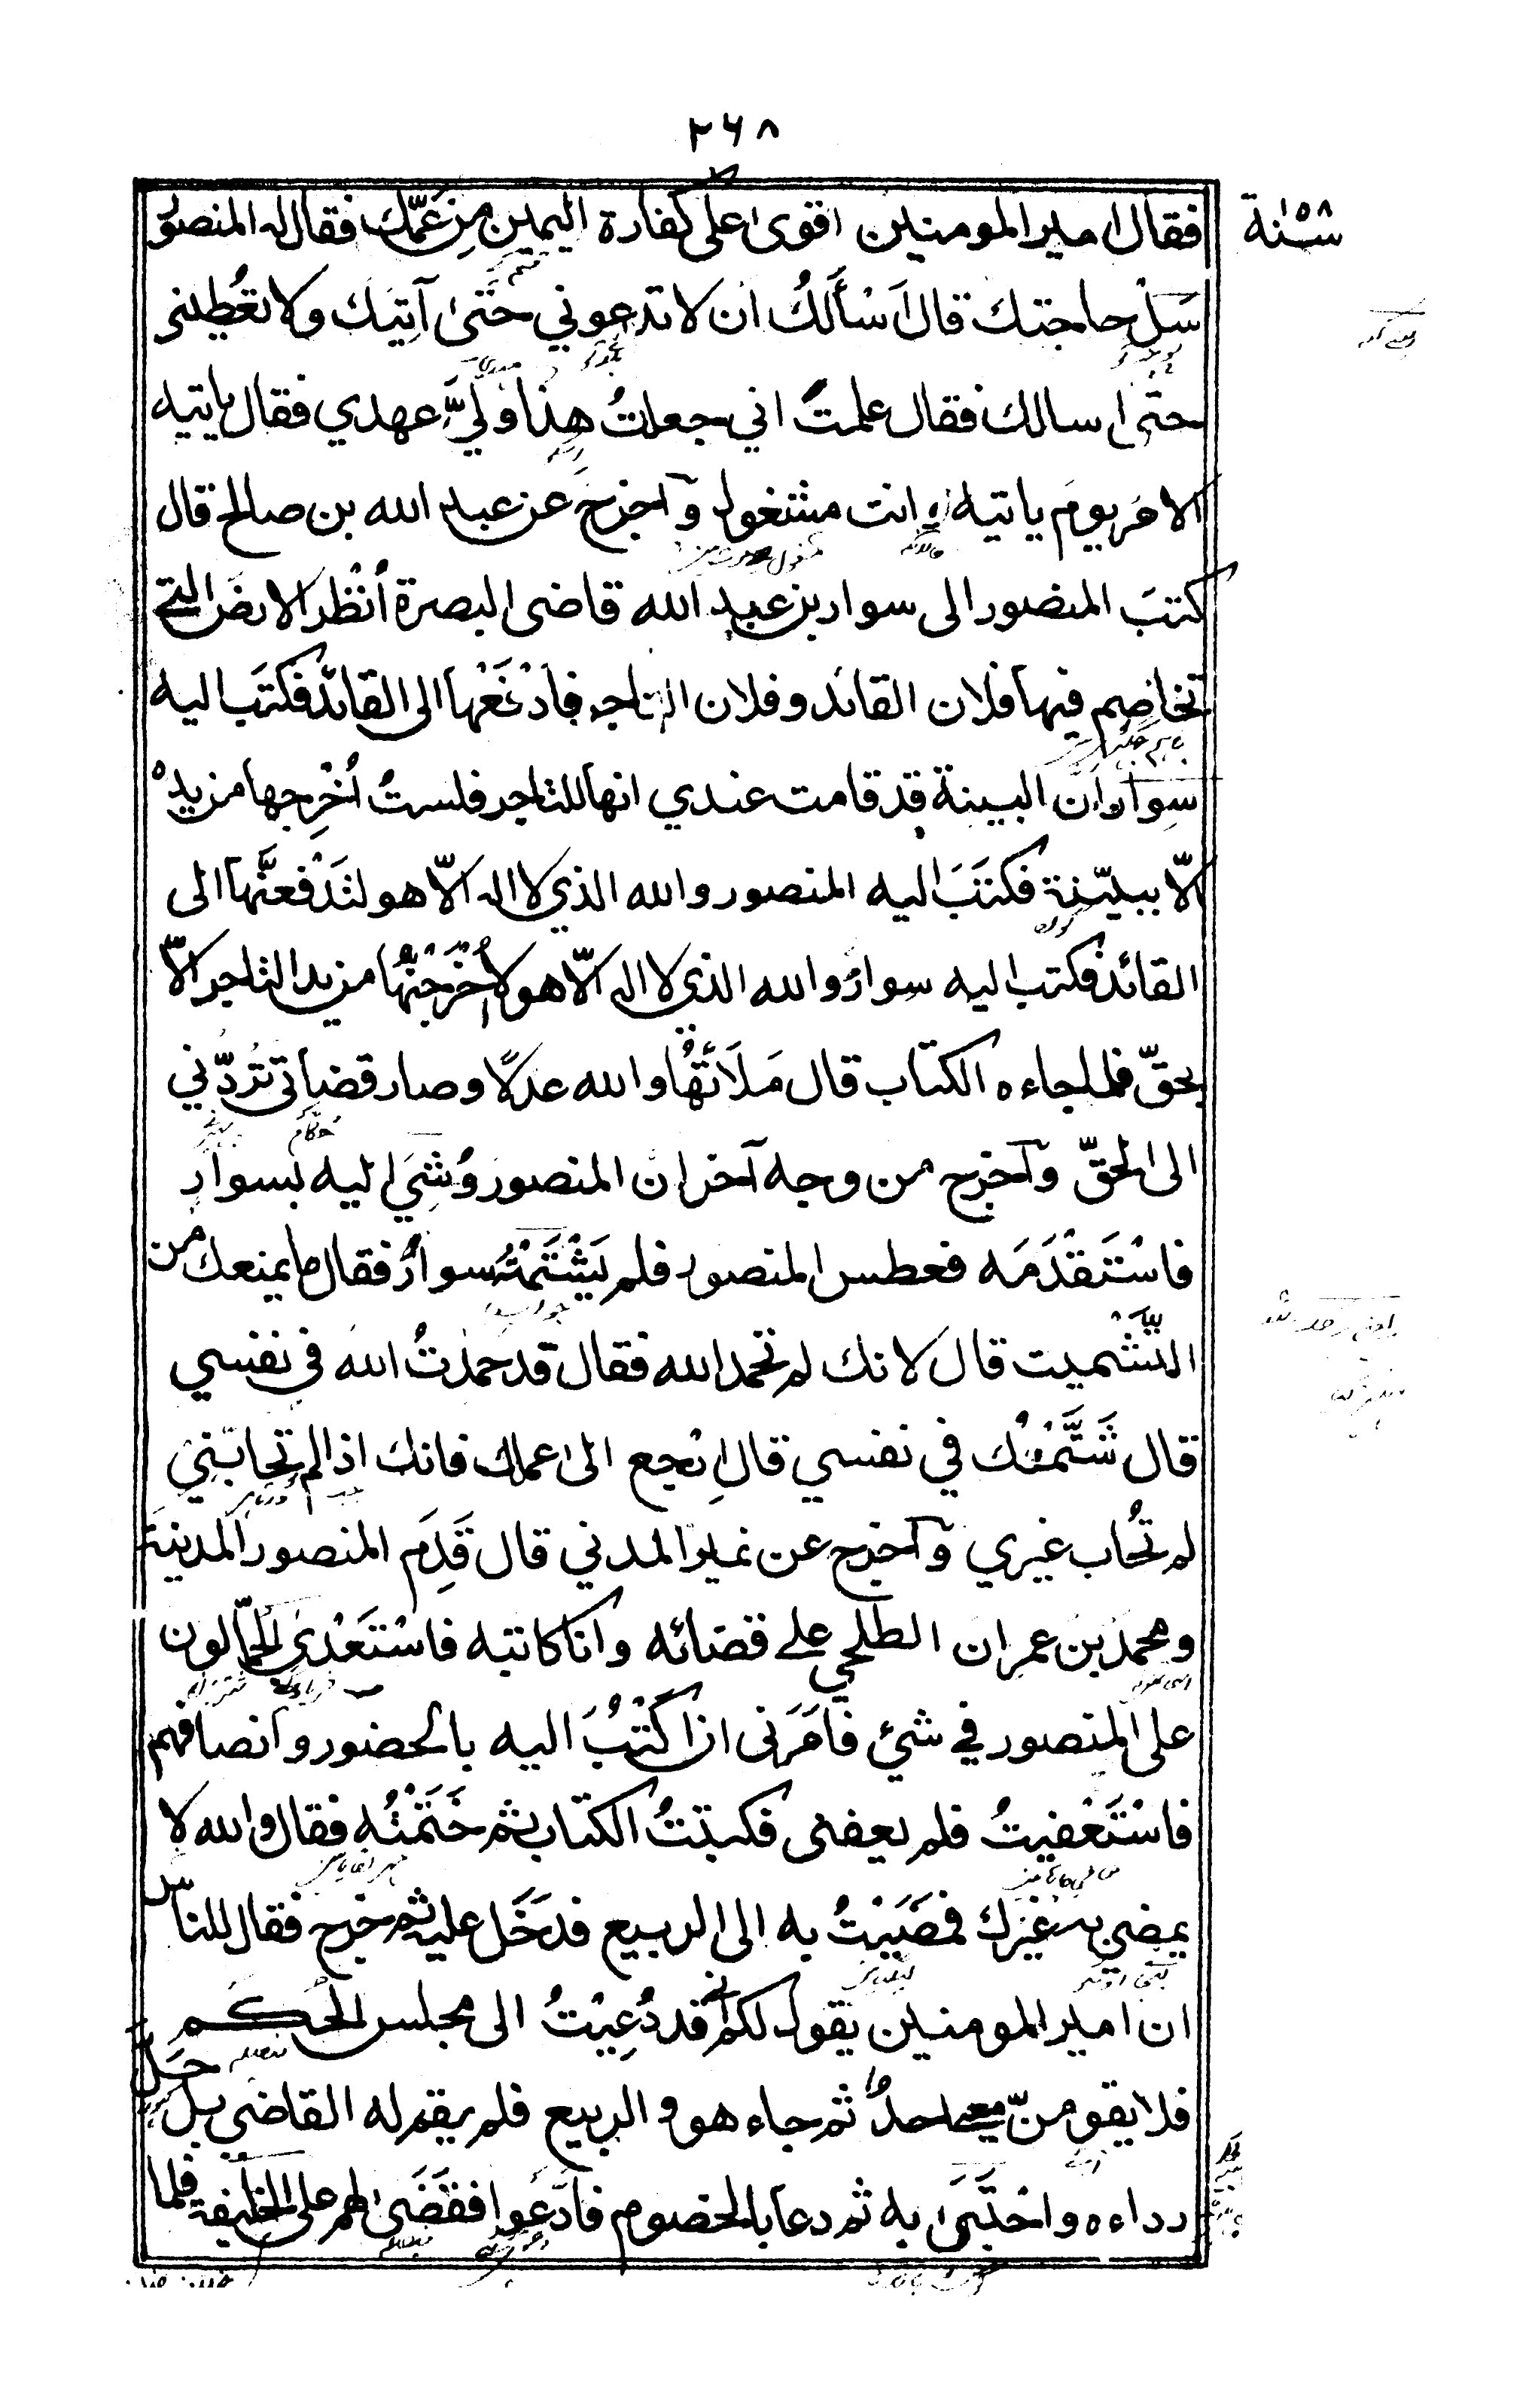 ۲۶۸
سنة ۱۵۸
فقال امير المومنين اقوى على كفارة اليمين من عَمِّك فقال له المنصور
سَلْ حاجتك قال اَسْأَلُكَ ان لا تدعوني حتىٰ آتِيَك ولا تُعْطِيني
حتى اسالك فقال علمتَ اني جعلتُ هذا وليَّ عهدي فقال ياتيه
الامر يوم ياتيه وانت مشغول وآخرج عن عبد الله بن صالح قال
كتبَ المنصور الى سوار بن عبد الله قاضى البصرة اُنْظُر الارض التي
تخاصم فيها فلان القائد وفلان التاجر فادْفَعْها الى القائد فكتب اليه
سوار ان البينة قد قامت عندي انها للتاجر فلستُ اُخْرِجها من يدِه
الّا ببيّنة فكتَبَ اليه المنصور والله الذي لا اله الّا هو لتَدْفعنَّها الى
القائد فكتب اليه سوارٌ والله الذي لا اله الّا هو لا اُخْرَجْتُها من يد التاجر الّا
بحقّ فلما جاءه الكتاب قال مَلَأْتُها والله عدلًا وصار قضاتي تَرُدّني
الى الحقّ وآخرج من وجه آخر ان المنصور وُشِيَ اليه بسوارٍ
فاسْتَقْدَمَه فعطس المنصور فلم يَشْتَمتْه سوارٌ فقال ما يمنعك من
التَّشميت قال لانك لم تحمد الله فقال قد حمدتُ الله في نفسي
قال شَتَّمْتُك في نفسي قال اِرْجع الى عملك فانك اذا لم تحابّني
لم تُحاب غيري وآخرج عن نمير المدني قال قَدِمَ المنصور المدينة
ومحمد بن عمران الطلحي على قضائه وانا كاتبه فاسْتَعْدىٰ الجمّالون
على المنصور في شئ فاَمَرَنى ان اكْتُبَ اليه بالحضور وانصافهم
فاسْتَعْفيتُ فلم يعفنى فكتبتُ الكتاب ثم خَتَمْتُه فقال والله لا
يمضى به غيرك فمضَيْتُ به الى الربيع فدَخَل عليه ثم خرج فقال للناس
ان امير المومنين يقول لكم انى قد دُعِيْتُ الى مجلس الحكم
فلا يقومنّ معى احدٌ ثم جاء هو والربيع فلم يقم له القاضى بل حَلَّ
رداءه واحْتَبىٰ به ثم دعا بالخصوم فادَّعَوا فقَضَى لهم على الخليفة فلما